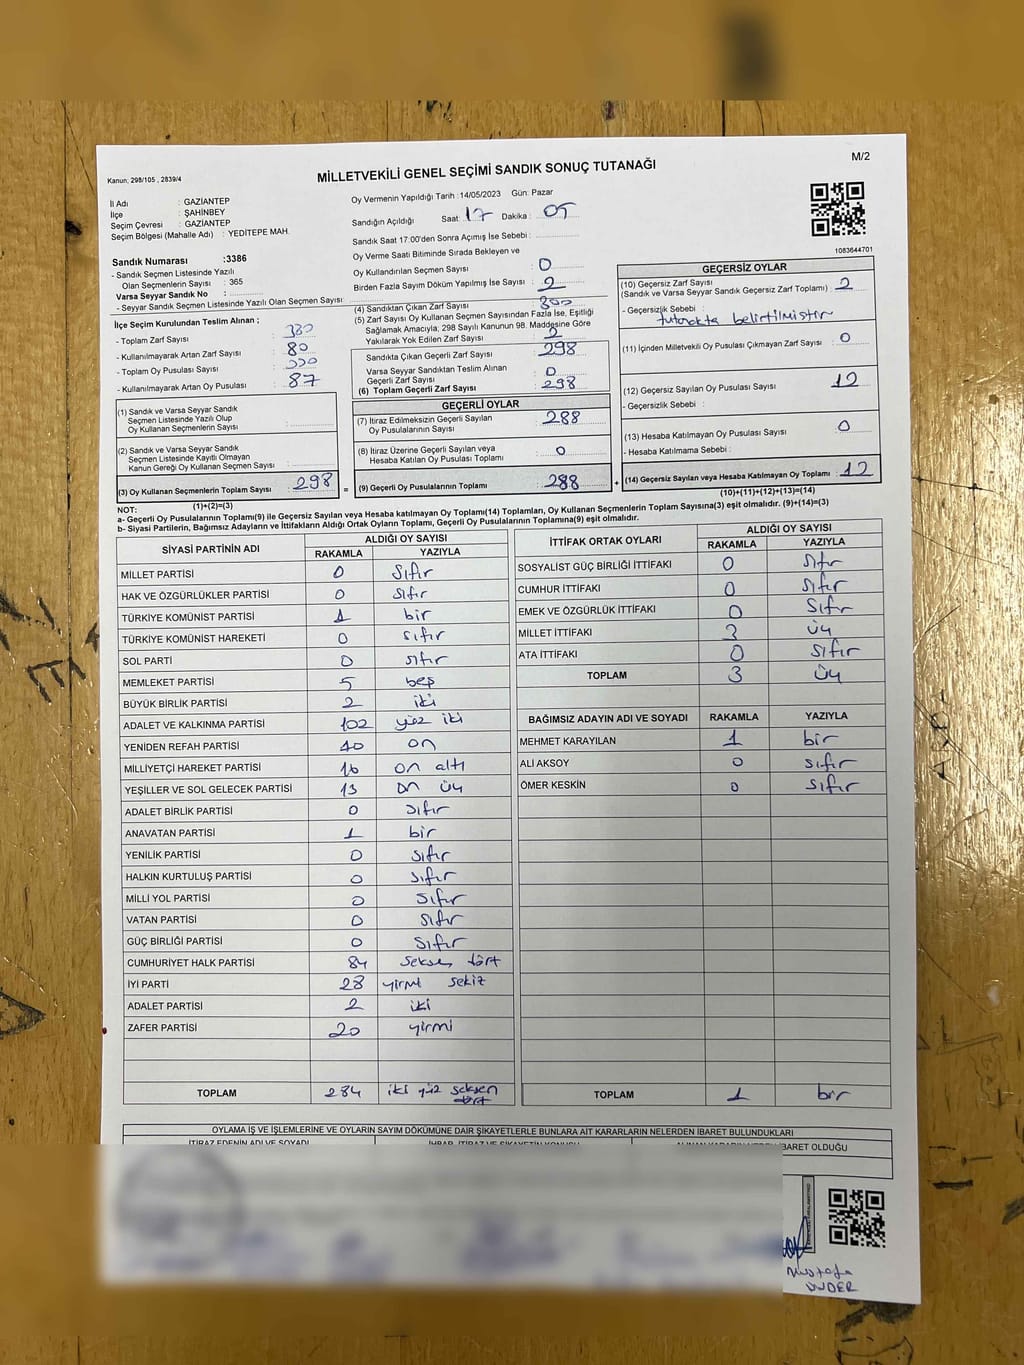 M/2
Kanun; 298/105 , 2839/4
MİLLETVEKİLİ GENEL SEÇİMİ SANDIK SONUÇ TUTANAĞI
İl Adı : GAZİANTEP
İlçe : ŞAHİNBEY
Seçim Çevresi : GAZİANTEP
Seçim Bölgesi (Mahalle Adı) : YEDİTEPE MAH.
Sandık Numarası :3386
- Sandık Seçmen Listesinde Yazılı
Olan Seçmenlerin Sayısı : 365
Varsa Seyyar Sandık No :
- Seyyar Sandık Seçmen Listesinde Yazılı Olan Seçmen Sayısı:
İlçe Seçim Kurulundan Teslim Alınan ;
- Toplam Zarf Sayısı : 380
- Kullanılmayarak Artan Zarf Sayısı : 80
- Toplam Oy Pusulası Sayısı :
- Kullanılmayarak Artan Oy Pusulası : 87
(1) Sandık ve Varsa Seyyar Sandık
Seçmen Listesinde Yazılı Olup
Oy Kullanan Seçmenlerin Sayısı :
(2) Sandık ve Varsa Seyyar Sandık
Seçmen Listesinde Kayıtlı Olmayan
Kanun Gereği Oy Kullanan Seçmen Sayısı :
(3) Oy Kullanan Seçmenlerin Toplam Sayısı : 298
(1)+(2)=(3)
Oy Vermenin Yapıldığı Tarih :14/05/2023 Gün: Pazar
Sandığın Açıldığı Saat: 17 Dakika : 05
Sandık Saat 17:00'den Sonra Açımış İse Sebebi :
Oy Verme Saati Bitiminde Sırada Bekleyen ve
Oy Kullandırılan Seçmen Sayısı : 0
Birden Fazla Sayım Döküm Yapılmış İse Sayısı : 2
(4) Sandıktan Çıkan Zarf Sayısı : 300
(5) Zarf Sayısı Oy Kullanan Seçmen Sayısından Fazla İse, Eşitliği
Sağlamak Amacıyla, 298 Sayılı Kanunun 98. Maddesine Göre
Yakılarak Yok Edilen Zarf Sayısı : 2
Sandıkta Çıkan Geçerli Zarf Sayısı : 298
Varsa Seyyar Sandıktan Teslim Alınan
Geçerli Zarf Sayısı : 0
(6) Toplam Geçerli Zarf Sayısı : 298
GEÇERLİ OYLAR
(7) İtiraz Edilmeksizin Geçerli Sayılan
Oy Pusulalarının Sayısı : 288
(8) İtiraz Üzerine Geçerli Sayılan veya
Hesaba Katılan Oy Pusulası Toplamı : 0
= (9) Geçerli Oy Pusulalarının Toplamı : 288 +
1083644701
GEÇERSİZ OYLAR
(10) Geçersiz Zarf Sayısı : 2
(Sandık ve Varsa Seyyar Sandık Geçersiz Zarf Toplamı)
- Geçersizlik Sebebi :
tutanakta belirtilmiştir
(11) İçinden Milletvekili Oy Pusulası Çıkmayan Zarf Sayısı : 0
(12) Geçersiz Sayılan Oy Pusulası Sayısı : 12
- Geçersizlik Sebebi :
(13) Hesaba Katılmayan Oy Pusulası Sayısı : 0
- Hesaba Katılmama Sebebi :
(14) Geçersiz Sayılan veya Hesaba Katılmayan Oy Toplamı : 12
(10)+(11)+(12)+(13)=(14)
NOT:
a- Geçerli Oy Pusulalarının Toplamı(9) ile Geçersiz Sayılan veya Hesaba Katılmayan Oy Toplamı(14) Toplamları, Oy Kullanan Seçmenlerin Toplam Sayısına(3) eşit olmalıdır. (9)+(14)=(3)
b- Siyasi Partilerin, Bağımsız Adayların ve İttifakların Aldığı Ortak Oyların Toplamı, Geçerli Oy Pusulalarının Toplamına(9) eşit olmalıdır.
SİYASİ PARTİNİN ADI ALDIĞI OY SAYISI
RAKAMLA YAZIYLA
MİLLET PARTİSİ 0 sıfır
HAK VE ÖZGÜRLÜKLER PARTİSİ 0 sıfır
TÜRKİYE KOMÜNİST PARTİSİ 1 bir
TÜRKİYE KOMÜNİST HAREKETİ 0 sıfır
SOL PARTİ 0 sıfır
MEMLEKET PARTİSİ 5 beş
BÜYÜK BİRLİK PARTİSİ 2 iki
ADALET VE KALKINMA PARTİSİ 102 yüz iki
YENİDEN REFAH PARTİSİ 10 on
MİLLİYETÇİ HAREKET PARTİSİ 16 on altı
YEŞİLLER VE SOL GELECEK PARTİSİ 13 on üç
ADALET BİRLİK PARTİSİ 0 sıfır
ANAVATAN PARTİSİ 1 bir
YENİLİK PARTİSİ 0 sıfır
HALKIN KURTULUŞ PARTİSİ 0 sıfır
MİLLİ YOL PARTİSİ 0 sıfır
VATAN PARTİSİ 0 sıfır
GÜÇ BİRLİĞİ PARTİSİ 0 sıfır
CUMHURİYET HALK PARTİSİ 84 seksen dört
İYİ PARTİ 28 yirmi sekiz
ADALET PARTİSİ 2 iki
ZAFER PARTİSİ 20 yirmi
TOPLAM 284 iki yüz seksen dört
İTTİFAK ORTAK OYLARI ALDIĞI OY SAYISI
RAKAMLA YAZIYLA
SOSYALİST GÜÇ BİRLİĞİ İTTİFAKI 0 sıfır
CUMHUR İTTİFAKI 0 sıfır
EMEK VE ÖZGÜRLÜK İTTİFAKI 0 sıfır
MİLLET İTTİFAKI 3 üç
ATA İTTİFAKI 0 sıfır
TOPLAM 3 üç
BAĞIMSIZ ADAYIN ADI VE SOYADI RAKAMLA YAZIYLA
MEHMET KARAYILAN 1 bir
ALİ AKSOY 0 sıfır
ÖMER KESKİN 0 sıfır
TOPLAM 1 bir
OYLAMA İŞ VE İŞLEMLERİNE VE OYLARIN SAYIM DÖKÜMÜNE DAİR ŞİKAYETLERLE BUNLARA AİT KARARLARIN NELERDEN İBARET BULUNDUKLARI
İTİRAZ EDENİN ADI VE SOYADI İHBAR, İTİRAZ VE ŞİKAYETİN KONUSU İBARET OLDUĞU
Mustafa
ÖNDER